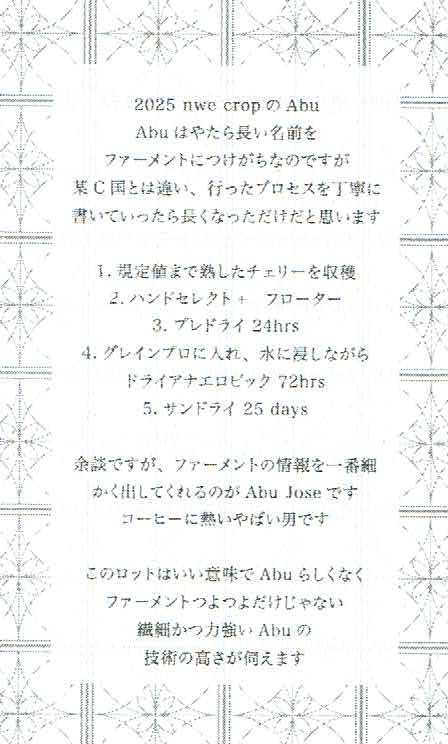 2025 nwe crop の Abu
Abu はやたら長い名前を
ファーメントにつけがちなのですが
某 C 国とは違い、行ったプロセスを丁寧に
書いていったら長くなっただけだと思います
1. 規定値まで熟したチェリーを収穫
2. ハンドセレクト + フローター
3. プレドライ 24hrs
4. グレインプロに入れ、水に浸しながら
ドライアナエロビック 72hrs
5. サンドライ 25 days
余談ですが、ファーメントの情報を一番細
かく出してくれるのが Abu Jose です
コーヒーに熱いやばい男です
このロットはいい意味で Abu らしくなく
ファーメントつよつよだけじゃない
繊細かつ力強い Abu の
技術の高さが伺えます